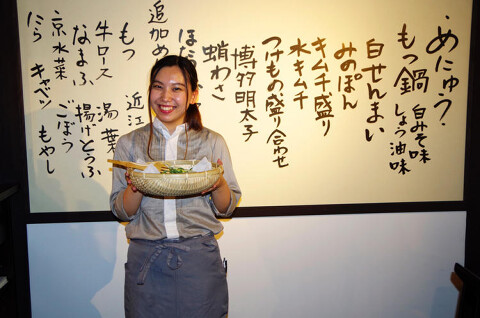 ・めにゅう・
もつ鍋 白みそ味
しょう油味
白せんまい
みのぽん
キムチ盛り
水キムチ
つけもの盛り合わせ
博多明太子
蛸わさ
ほた
追加め
もつ 近江
牛ロース 湯葉
なまふ 揚げとうふ
京水菜 ごぼう
にら キャベツ もやし